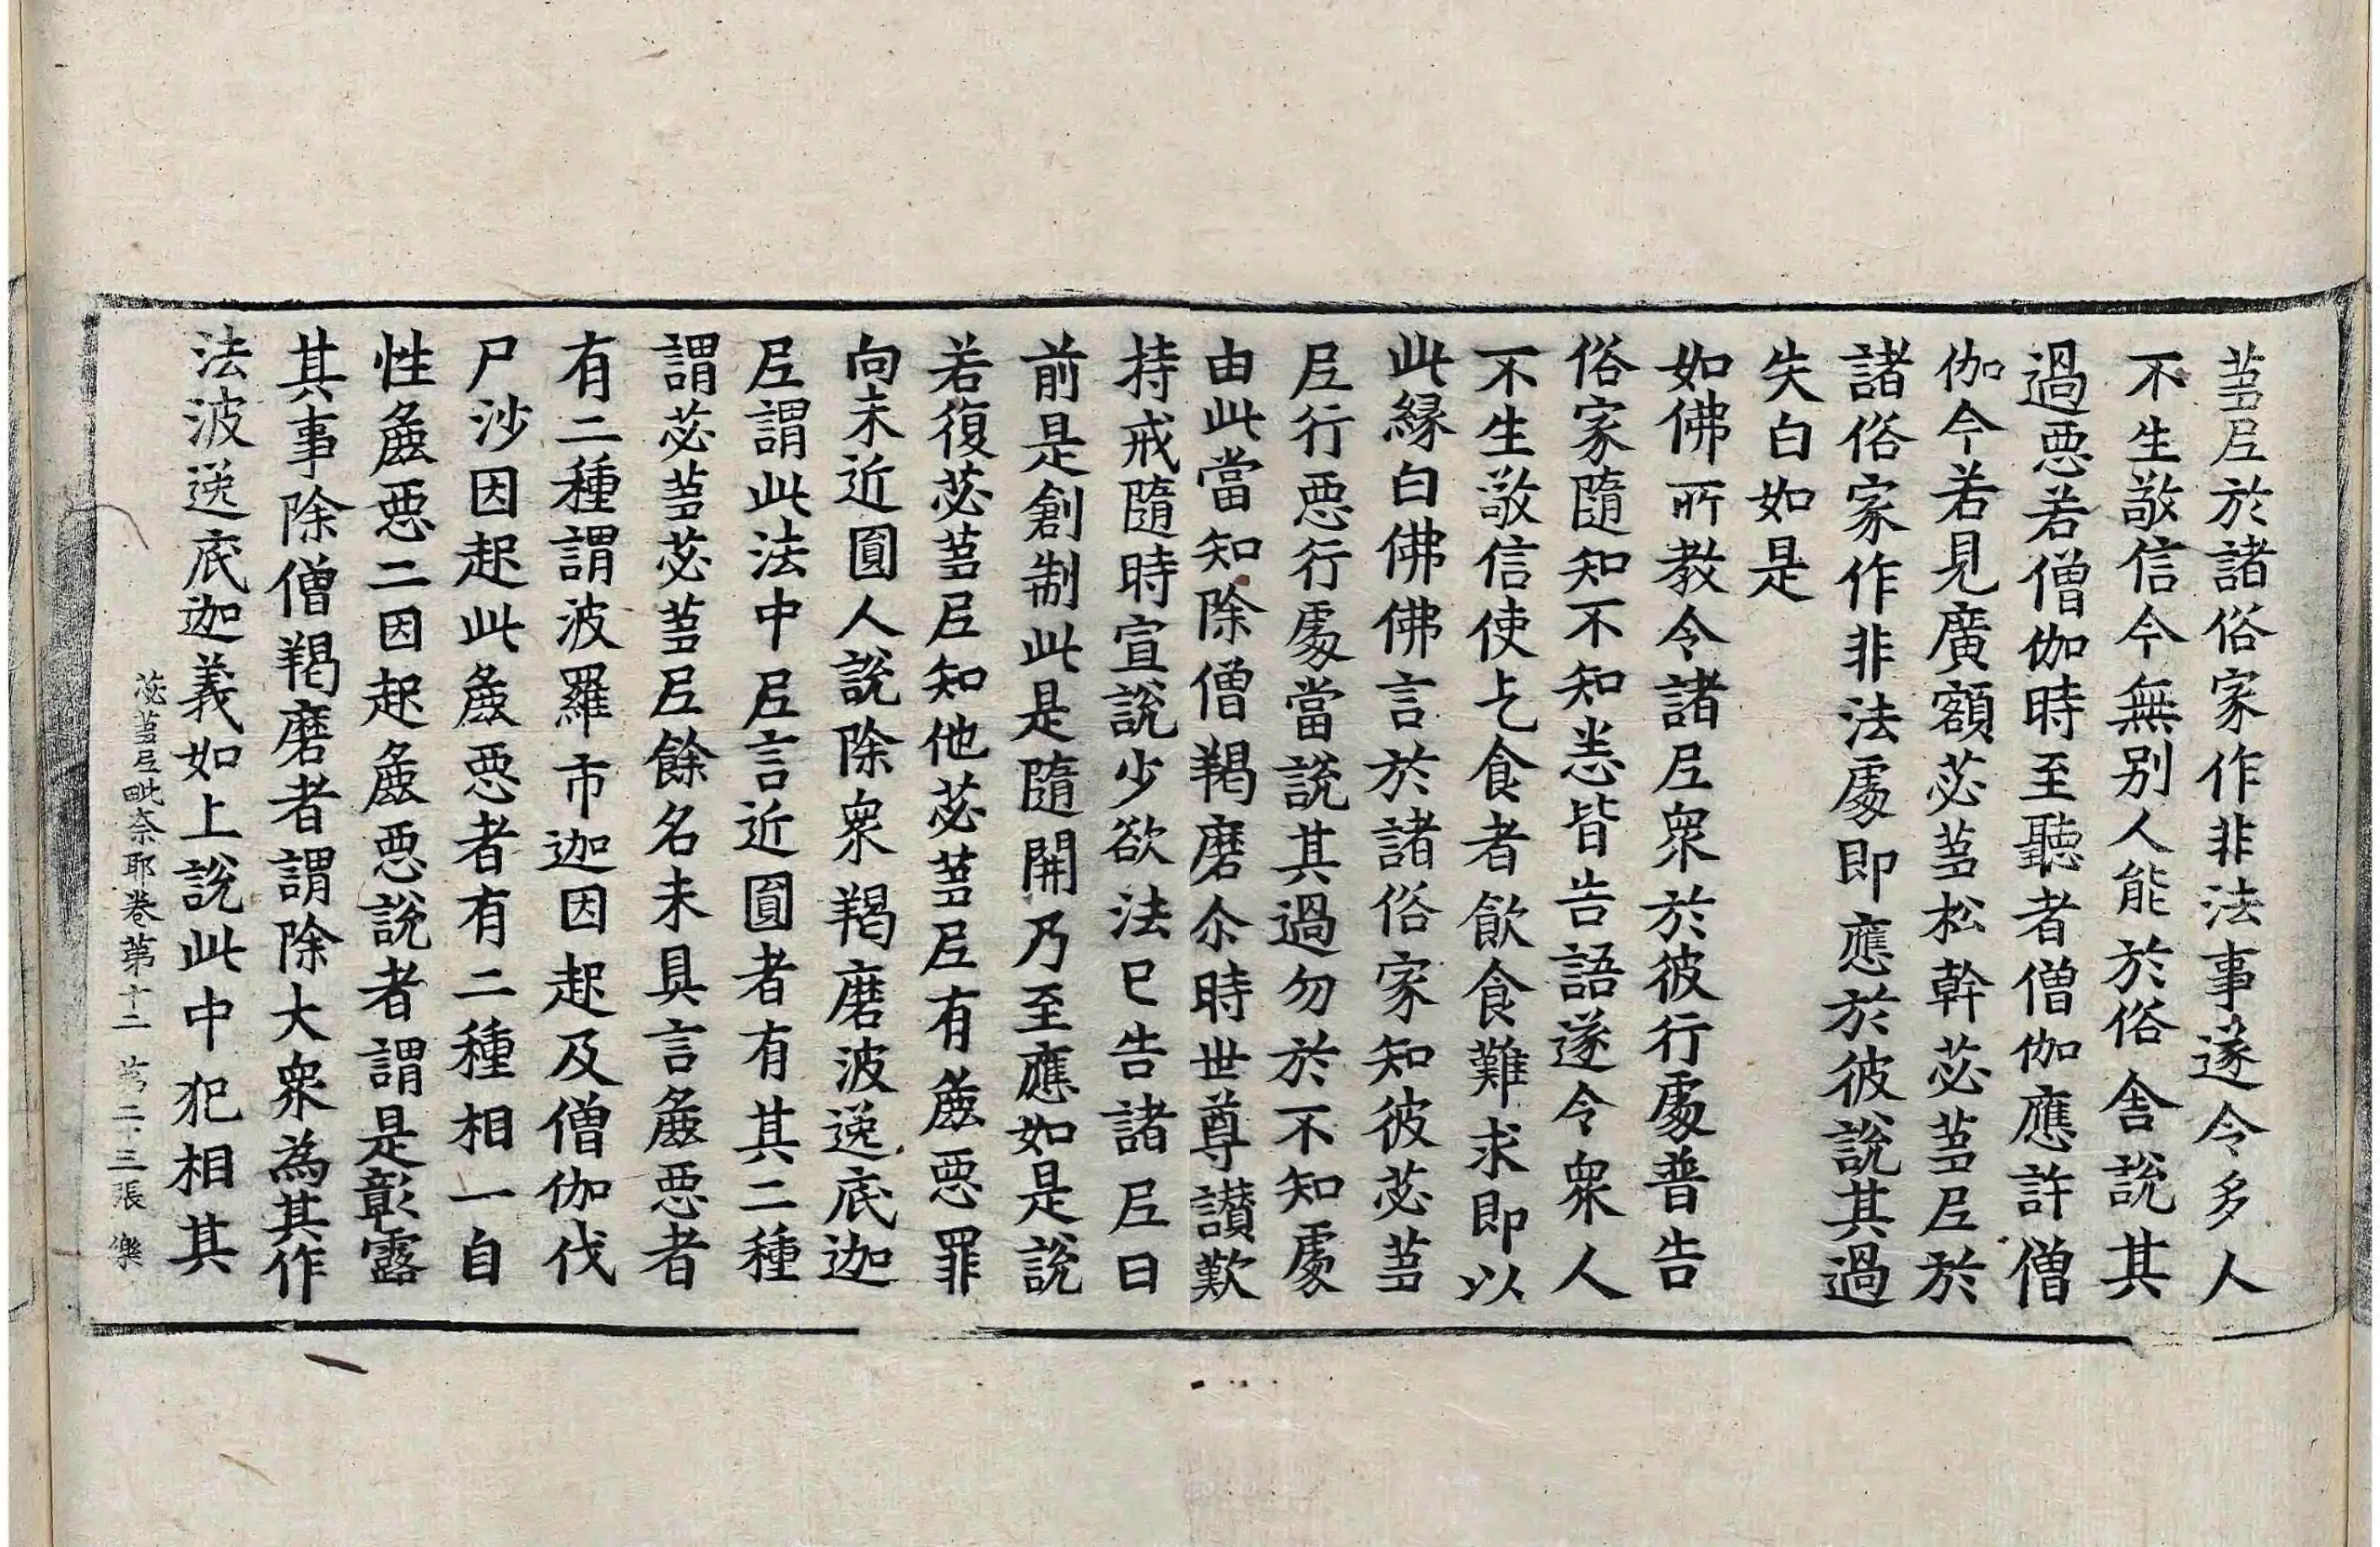 蒭𡰱於諸俗家作非法事遂令多人
不生敬信今無別人能於俗舍說其
過惡若僧伽時至聽者僧伽應許僧
伽今若見廣額苾蒭松幹苾蒭𡰱於
諸俗家作非法處即應於彼說其過
失白如是
如佛所教令諸𡰱衆於彼行處普告
俗家隨知不知恙皆告語遂令衆人
不生敬信使乞食者飲食難求即以
此緣白佛佛言於諸俗家知彼苾蒭
𡰱行惡行處當說其過勿於不知處
由此當知除僧羯磨尒時世尊讃歎
持戒隨時宣說少欲法已告諸𡰱曰
前是創制此是隨開乃至應如是說
若復苾蒭𡰱知他苾蒭𡰱有麁惡罪
向未近圓人說除衆羯磨波逸底迦
𡰱謂此法中𡰱言近圓者有其二種
謂苾蒭苾蒭𡰱餘名未具言麁惡者
有二種謂波羅市迦因起及僧伽伐
尸沙因起此麁惡者有二種相一自
性麁惡二因起麁惡說者謂是彰露
其事除僧羯磨者謂除大衆為其作
法波逸底迦義如上說此中犯相其
苾蒭𡰱毗奈耶卷第十二 苐二·三張 樂